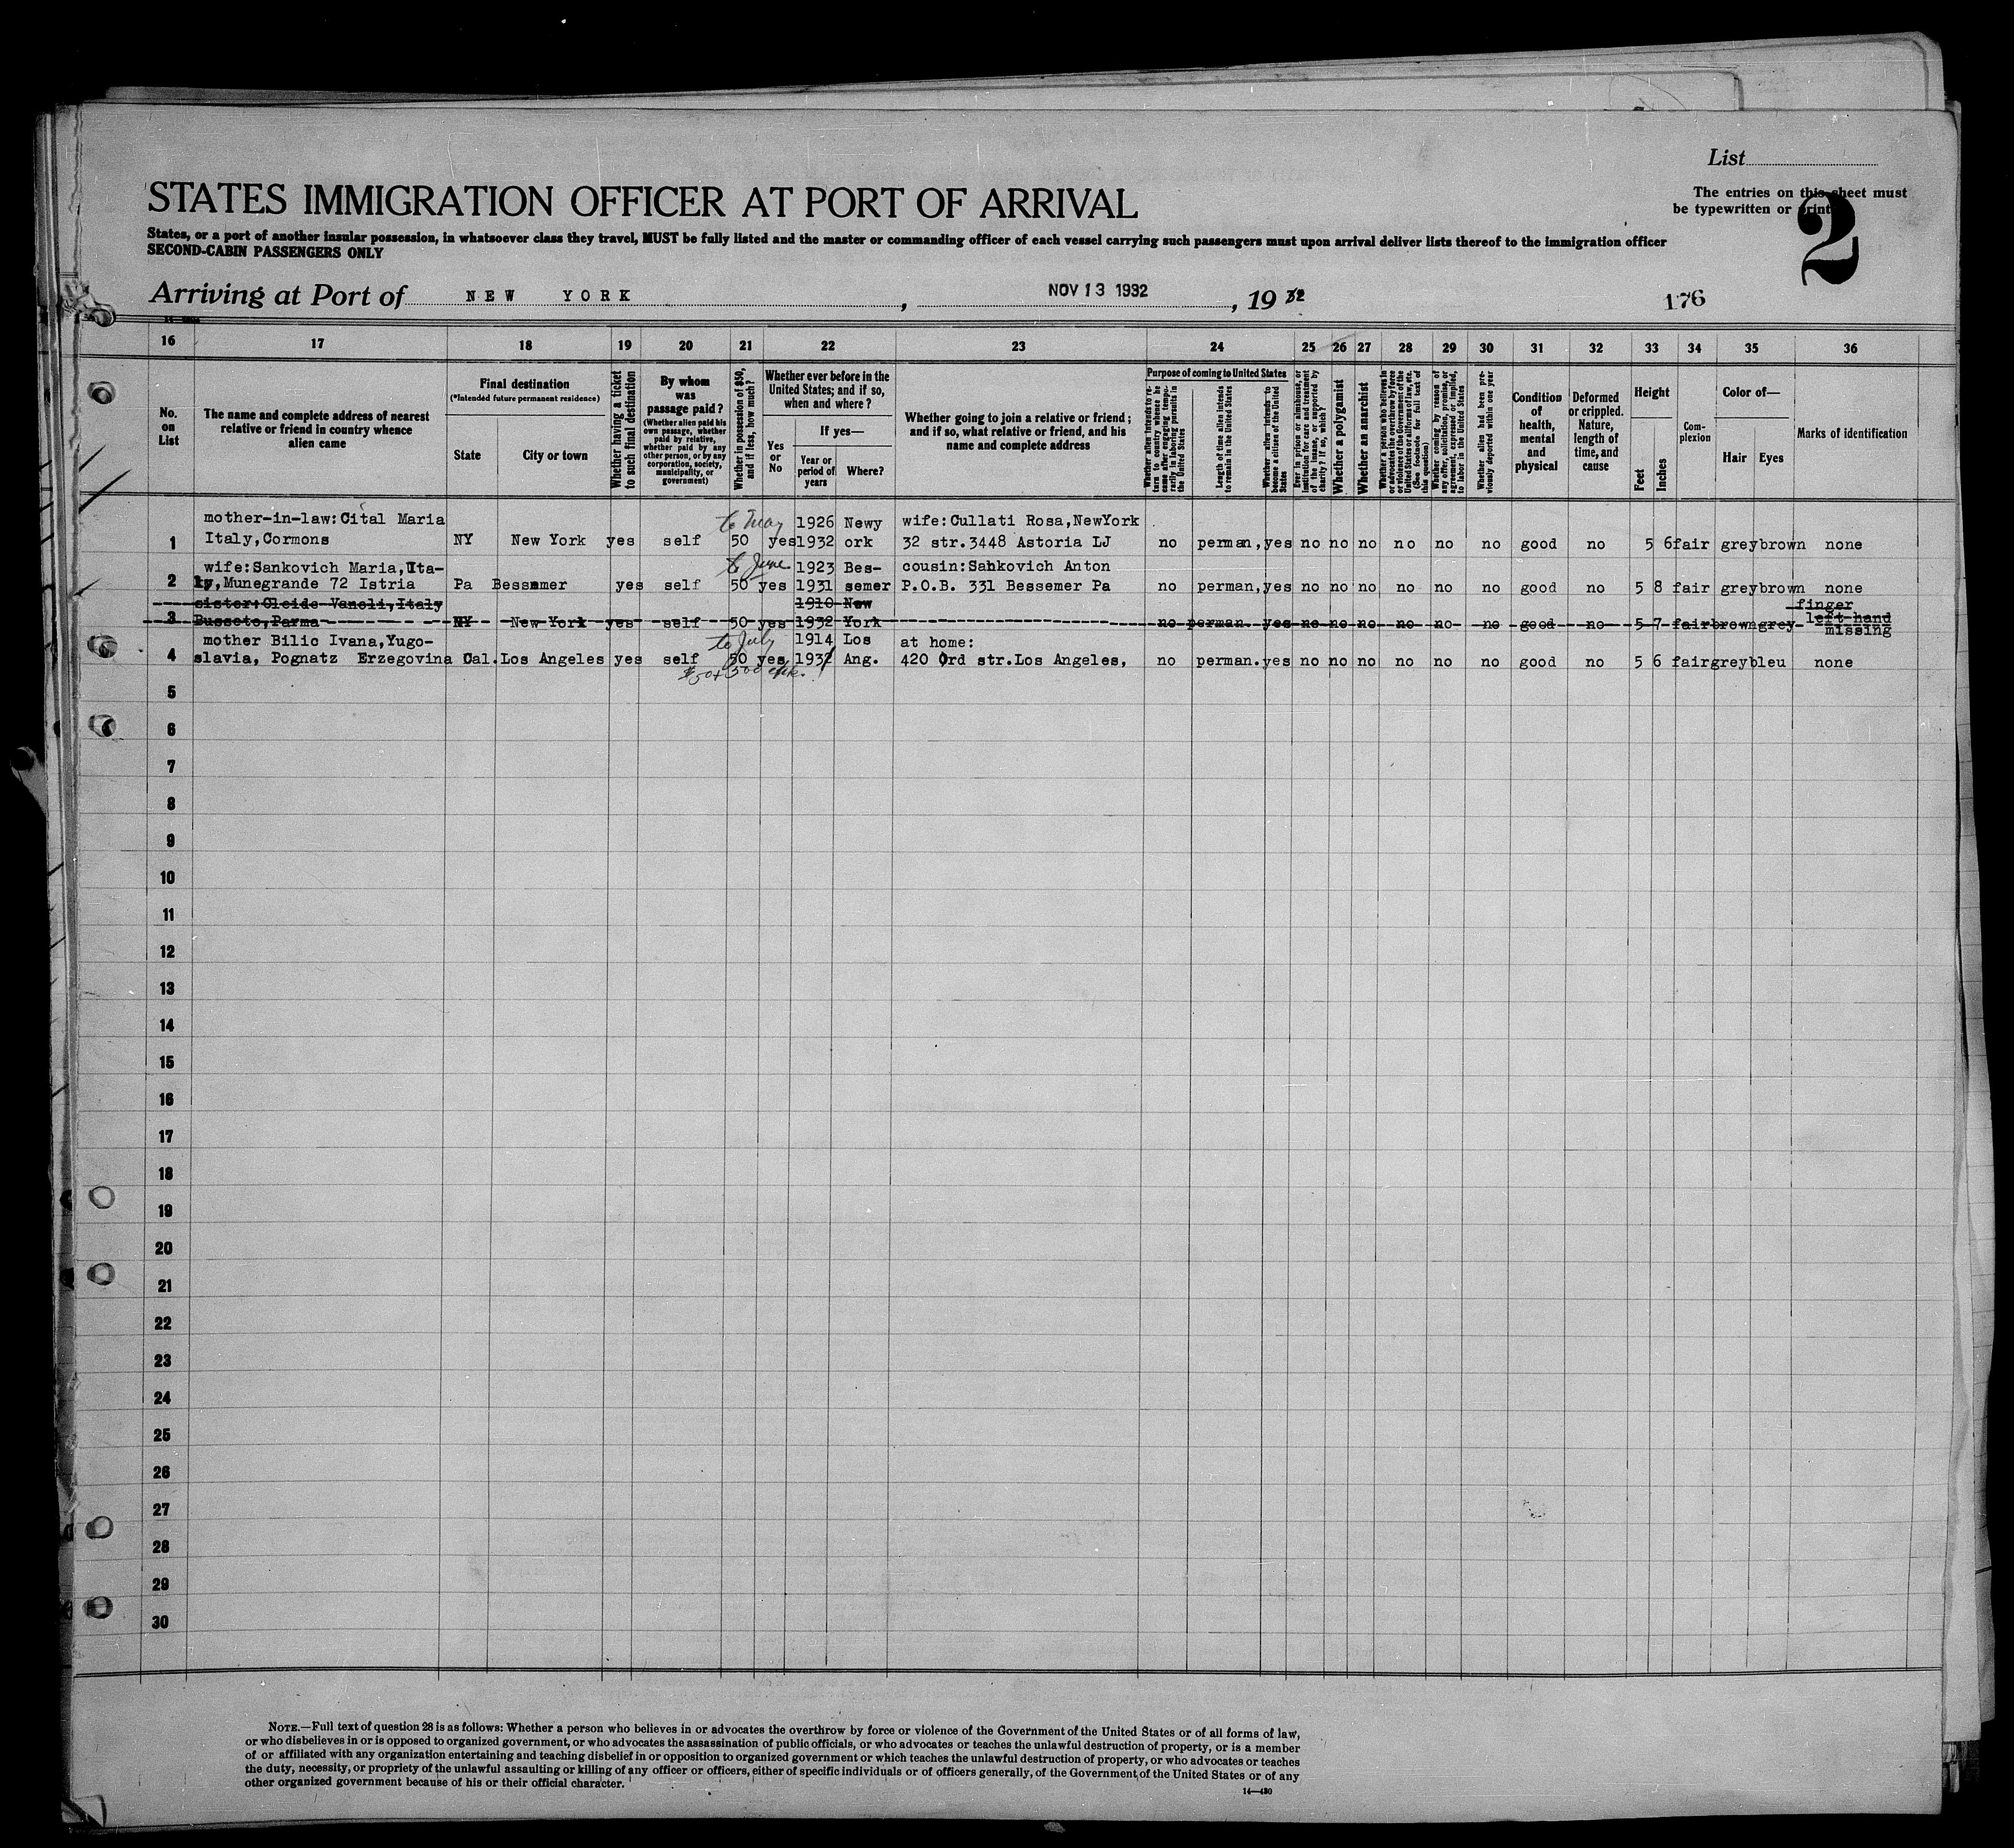 List
The entries on this sheet must
be typewritten or printed
2
STATES IMMIGRATION OFFICER AT PORT OF ARRIVAL
States, or a port of another insular possession, in whatsoever class they travel, MUST be fully listed and the master or commanding officer of each vessel carrying such passengers must upon arrival deliver lists thereof to the immigration officer
SECOND-CABIN PASSENGERS ONLY
Arriving at Port of NEW YORK , NOV 13 1932 , 19 32
176
16 17 18 19 20 21 22 23 24 25 26 27 28 29 30 31 32 33 34 35 36
No. on List
The name and complete address of nearest relative or friend in country whence alien came
Final destination
(*Intended future permanent residence)
State
City or town
Whether having a ticket to such final destination
By whom was passage paid?
(Whether alien paid his own passage, whether paid by relative, whether paid by any other person, or by any corporation, society, municipality, or government)
Whether in possession of $50, and if less, how much?
Whether ever before in the United States; and if so, when and where?
Yes or No
If yes—
Year or period of years
Where?
Whether going to join a relative or friend; and if so, what relative or friend, and his name and complete address
Purpose of coming to United States
Whether alien intends to return to country whence he came after engaging temporarily in laboring pursuits in the United States
Length of time alien intends to remain in the United States
Whether alien intends to become a citizen of the United States
Ever in prison or almshouse, or institution for care and treatment of the insane, or supported by charity? If so, which?
Whether a polygamist
Whether an anarchist
Whether a person who believes in or advocates the overthrow by force or violence of the Government of the United States or all forms of law, etc. (See footnote for full text of this question)
Whether coming by reason of any offer, solicitation, promise, or agreement, expressed or implied, to labor in the United States
Whether alien had been previously deported within one year
Condition of health, mental and physical
Deformed or crippled. Nature, length of time, and cause
Height
Feet
Inches
Complexion
Color of—
Hair Eyes
Marks of identification
mother-in-law:Cital Maria to May 1926 Newy wife:Cullati Rosa,NewYork
1 Italy,Cormons NY New York yes self 50 yes 1932 ork 32 str.3448 Astoria LJ no perman,yes no no no no no no good no 5 6 fair grey brown none
wife:Sankovich Maria,Ita- to June 1923 Bes- cousin:Sankovich Anton
2 ly,Munegrande 72 Istria Pa Bessemer yes self 50 yes 1931 semer P.O.B. 331 Bessemer Pa no perman,yes no no no no no no good no 5 8 fair grey brown none
sister:Cleide Vanoli,Italy 1910 New finger
3 Busseto,Parma NY New York yes self 50 yes 1932 York no perman. yes no no no no no no good no 5 7 fair brown grey left hand
missing
mother Bilic Ivana,Yugo- to July 1914 Los at home:
4 slavia, Pognatz Erzegovina Cal. Los Angeles yes self 50 yes 1931 Ang. 420 Ord str.Los Angeles, no perman.yes no no no no no no good no 5 6 fair grey bleu none
5
6
7
8
9
10
11
12
13
14
15
16
17
18
19
20
21
22
23
24
25
26
27
28
29
30
NOTE.—Full text of question 28 is as follows: Whether a person who believes in or advocates the overthrow by force or violence of the Government of the United States or of all forms of law,
or who disbelieves in or is opposed to organized government, or who advocates the assassination of public officials, or who advocates or teaches the unlawful destruction of property, or is a member
of or affiliated with any organization entertaining and teaching disbelief in or opposition to organized government or which teaches the unlawful destruction of property, or who advocates or teaches
the duty, necessity, or propriety of the unlawful assaulting or killing of any officer or officers, either of specific individuals or of officers generally, of the Government of the United States or of any
other organized government because of his or their official character.
14—430